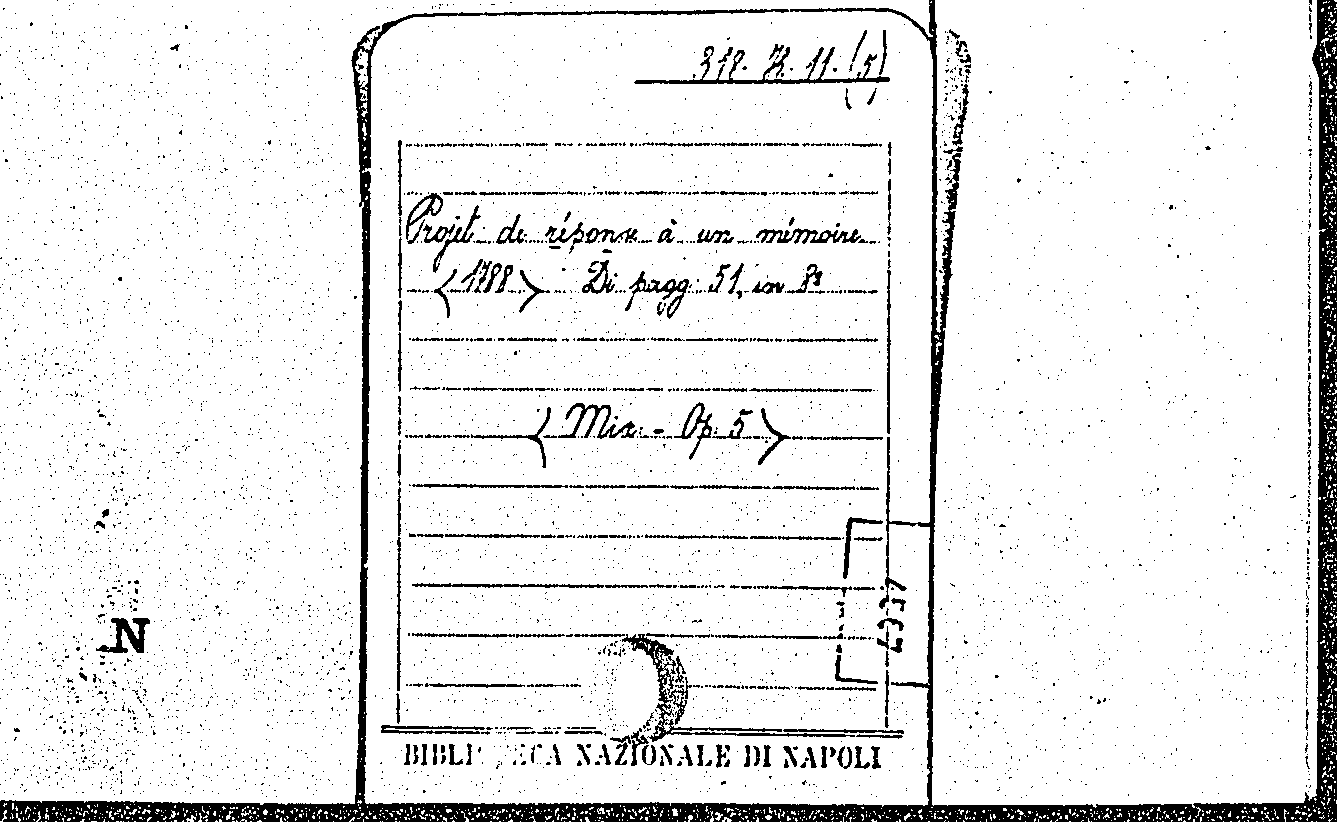 318. H. 11. (5)
Projet de réponse à un mémoire
<1788> Di pagg. 51, in 8º
<Mix. - Op. 5>
N
NAZIONALE DI NAPOLI